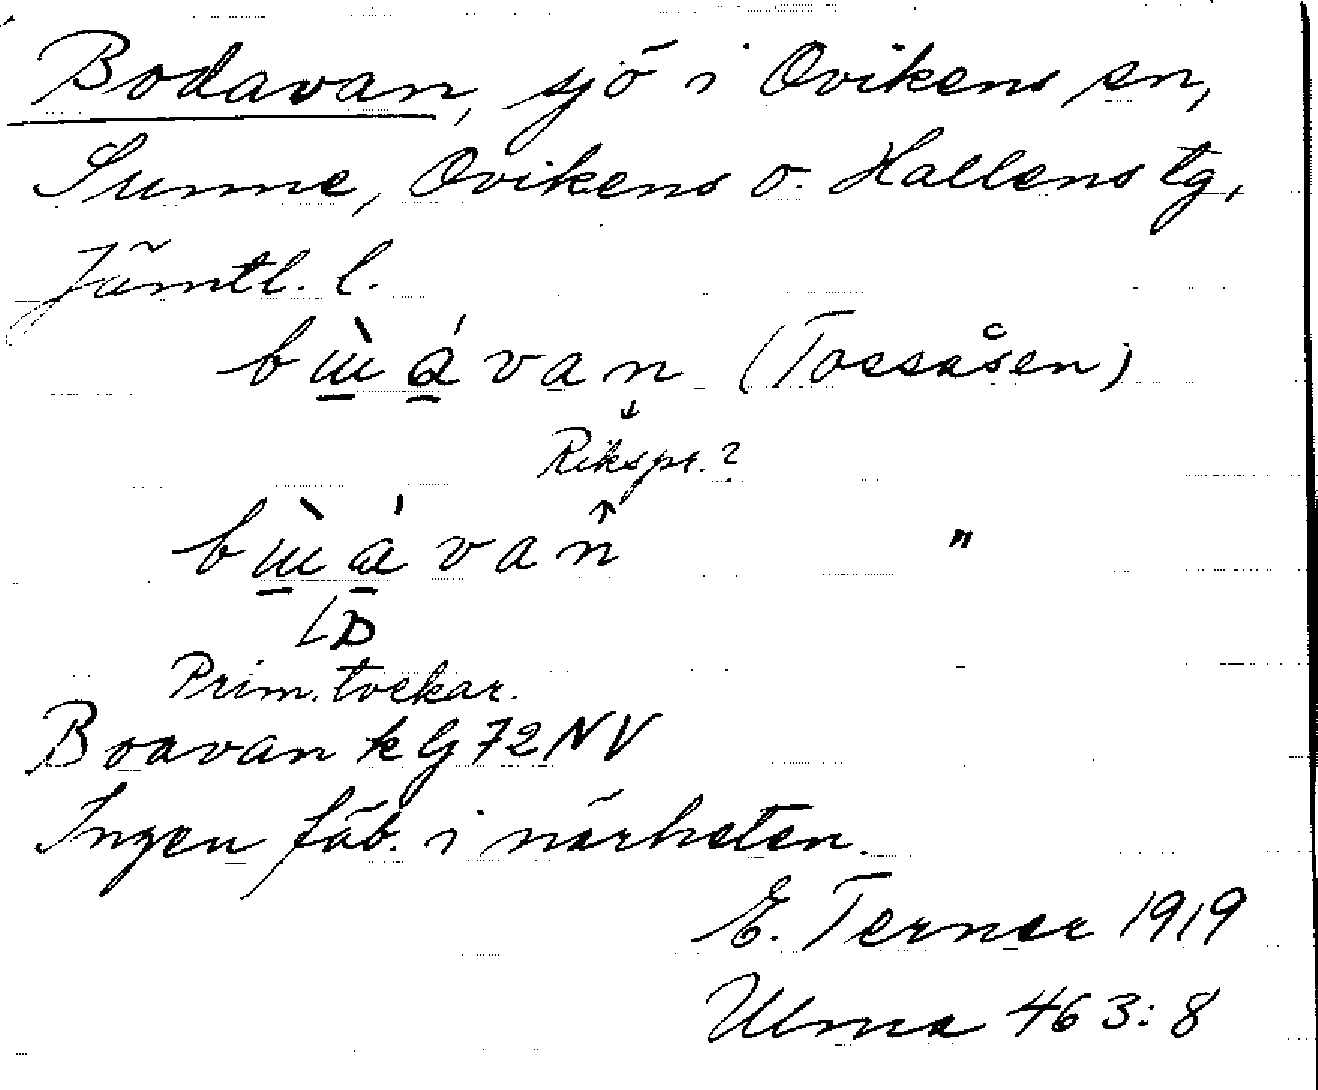 Bodavan, sjö i Ovikens sn,
Sunne, Ovikens o. Hallens tg,
Jämtl. l.
bɯ̀ávan (Tossåsen)
Rikspr.?
bɯ̀ávan̂ "
Prim. tvekar.
Boavan kG 72 NV
Ingen fäb. i närheten.
E. Ternar 1919
Ulma 463:8